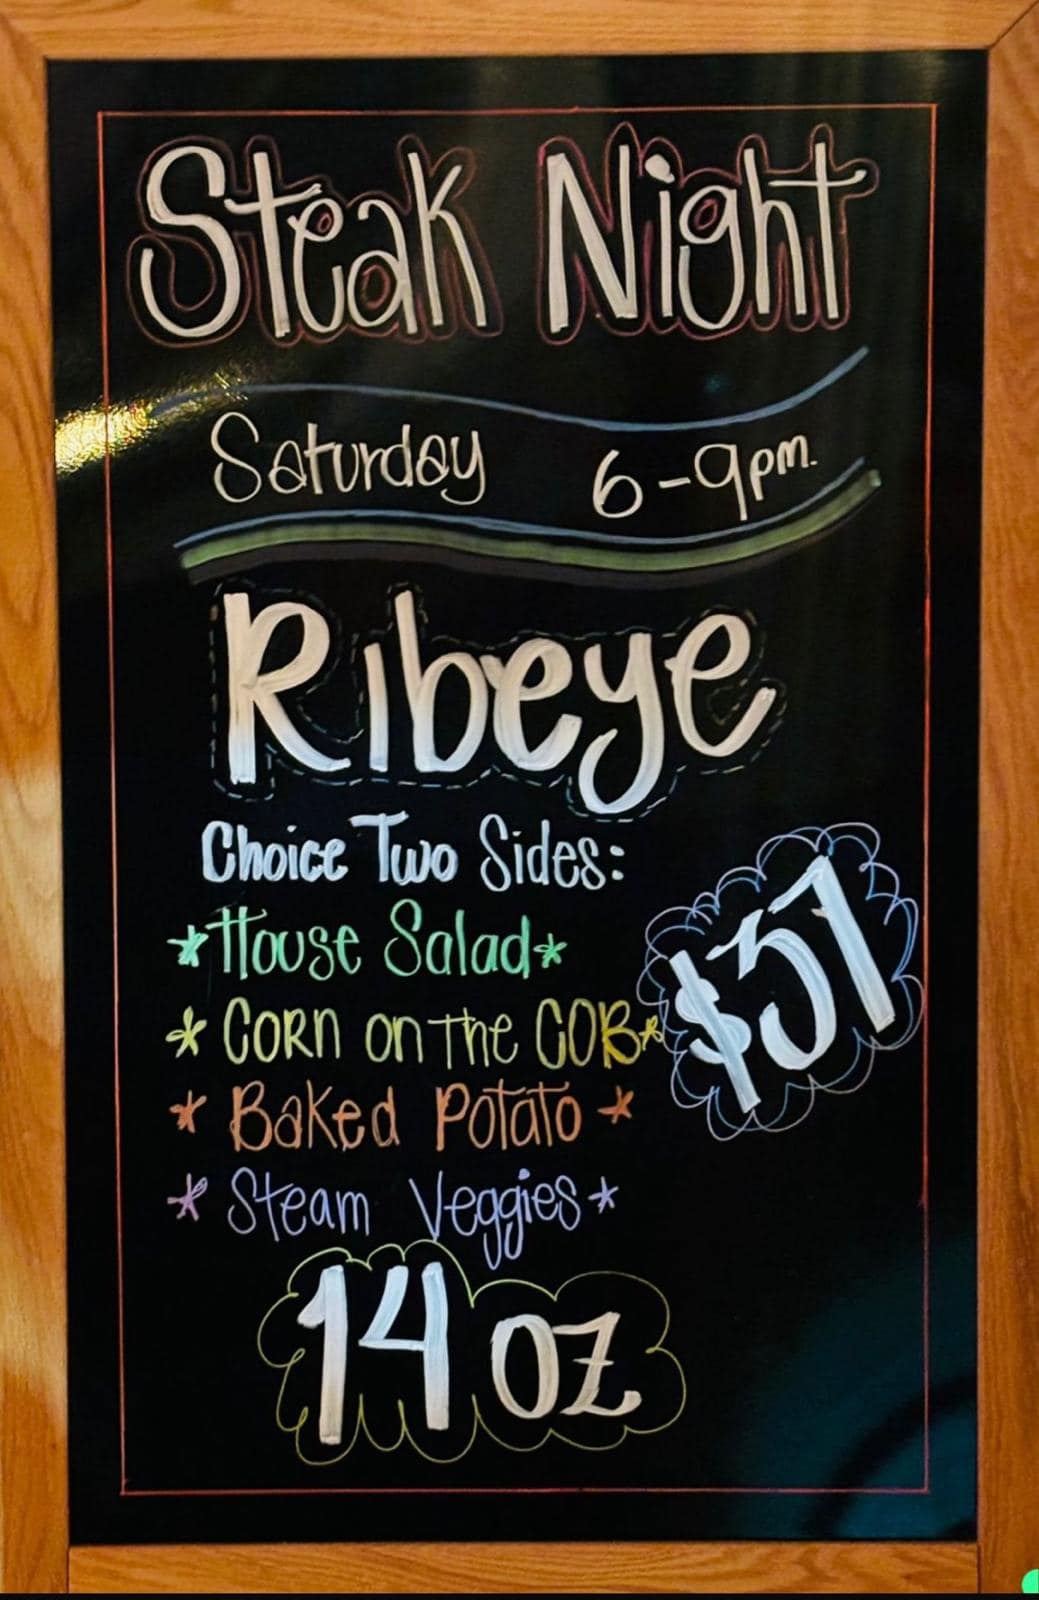 Steak Night
Saturday 6-9pm.
Ribeye
Choice Two Sides:
*House Salad*
*Corn on the COB*
$37
*Baked Potato*
*Steam Veggies*
14 oz